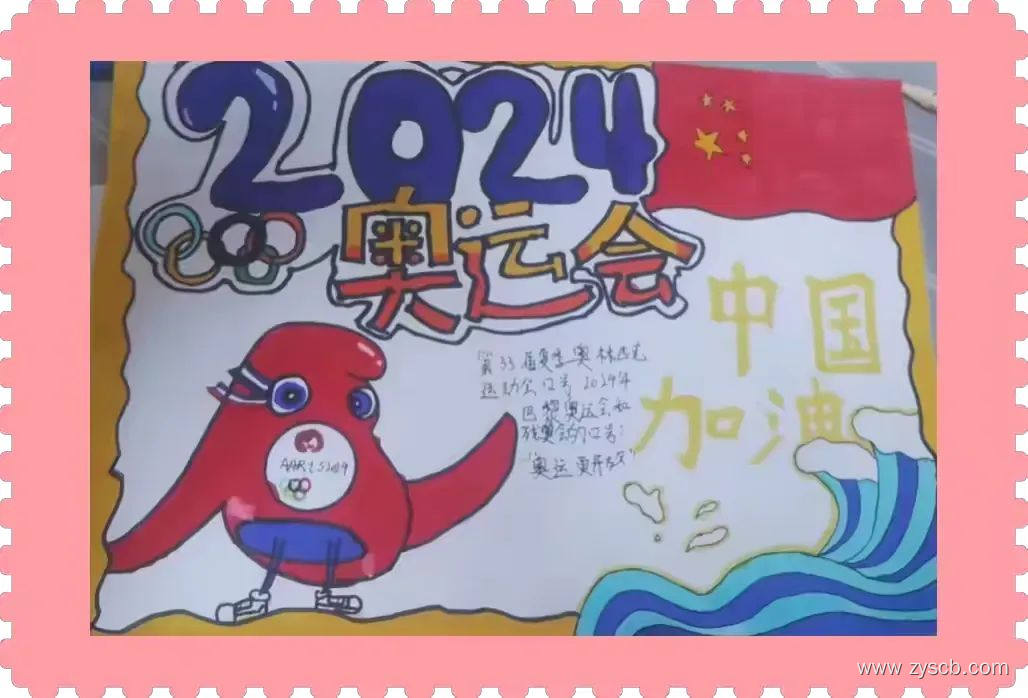 2024
奥运会
中国
加油
第33届夏季奥林匹克
运动会口号 2024年
巴黎奥运会和
残奥会的口号:
"奥运更开放"
www.zyscb.com